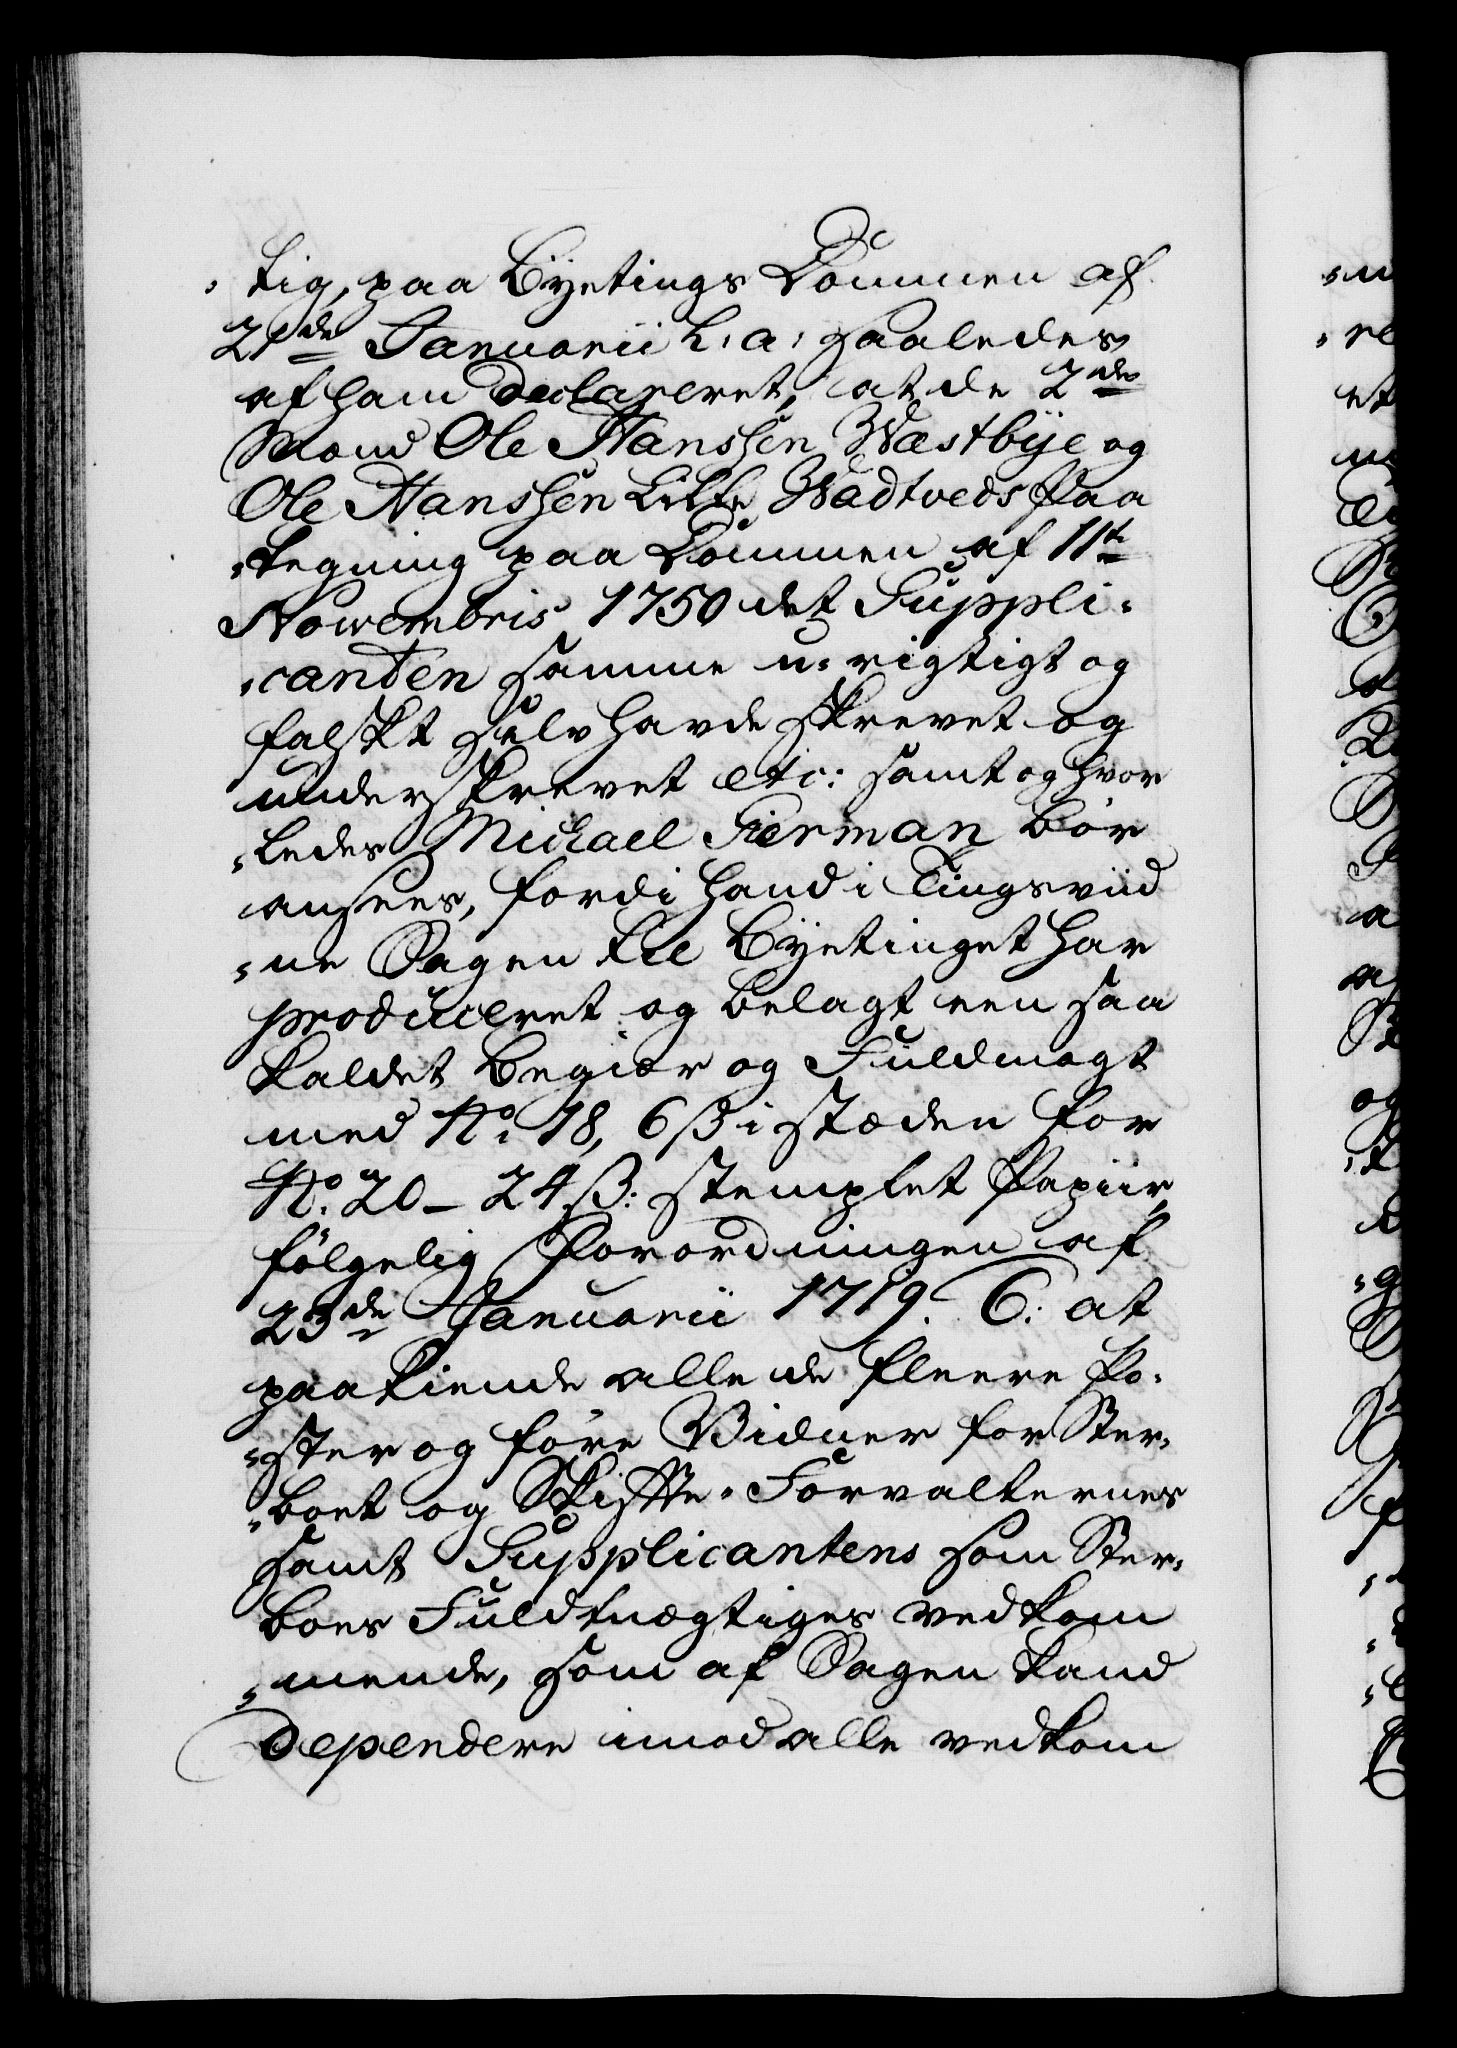 „tig, paa Byetings Dommen af
21de Januarii h: a: saaledes
af ham declareret, at de 2de
Mænd Ole Hanssen Wæstbye og
Ole Hanssen Lille Wadtveds Paa
„tegning paa Dommen af 11te
Novembris 1750 det Suppli„
„canten samme u-rigtigt og
falskt selv havde skrevet og
underskrevet etc: samt og hvor
„ledes Michael Fierman bør
ansees, fordi hand i Tingsvid
„ne Sagen til Byetinget har
produceret og belagt een saa
kaldet Begiær og Fuldmagt
med No: 18, 6 ß i stæden for
No: 20 – 24 ß: stemplet Papiir,
følgelig Forordningen af
23de Januarii 1719. C: at
paakiende alle de fleere Po„
„ster og føre Vidner for Ster„
„boet og Skifte-Forvalternes
samt Supplicantens som Ster„
boes Fuldmægtiges vedkom
„mende, som af Sagen kand
dependere imod alle vedkom